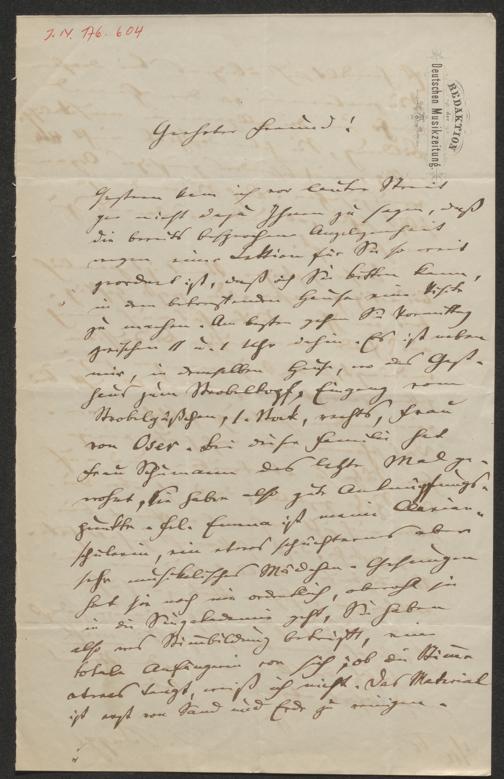 J.N. 176.604
REDAKTION
der
Deutschen Musikzeitung.
Geehrter Freund!
Gestern kam ich vor lauter Streit
gar nicht dazu Ihnen zu sagen, daß
die bereits besprochene Angelegenheit
wegen einer Lektion für Sie so weit
geordnet ist, daß ich Sie bitten kann,
in dem betreffenden Hause eine Visite
zu machen. Am besten gehen Sie Vormittag
zwischen 11 u. 1 Uhr dahin. Es ist neben
mir, in demselben Hause, wo das Gast-
haus zum Strobelkopf, Eingang vom
Strobelgäßchen, 1. Stock, rechts, Frau
von Oser. Bei dieser Familie hat
Frau Schumann das letzte Mal ge-
wohnt, Sie haben also gute Anknüpfungs-
punkte. Frl. Emma ist meine Clavier-
schülerin, ein etwas schüchternes aber
sehr musikalisches Mädchen. Gesungen
hat sie noch nie ordentlich, obwohl sie
in die Singakademie geht, Sie haben
also was Stimmbildung betrifft, eine
totale Anfängerin vor sich; ob die Stimme
etwas taugt, weiß ich nicht. Das Material
ist erst von Sand und Erde zu reinigen.